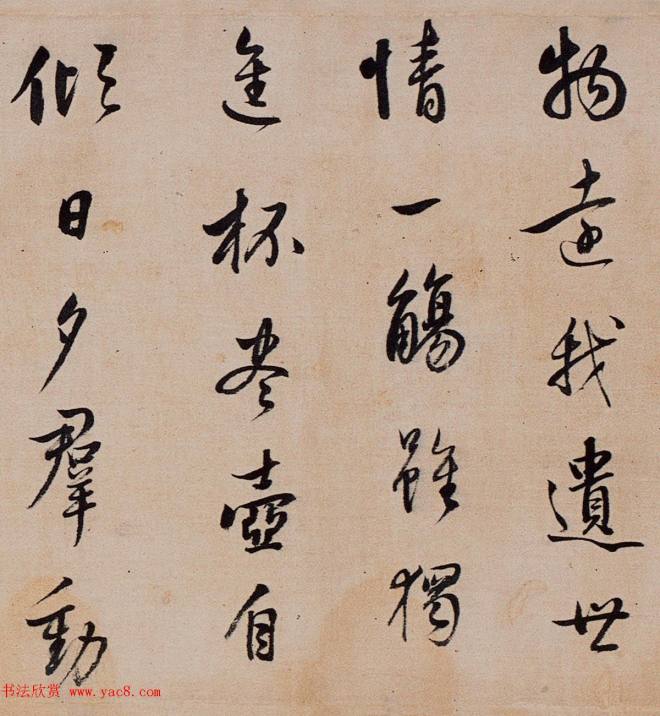 物遠我遺世
情一觴雖獨
進杯盡壺自
傾日夕群動
书法欣赏 www.yac8.com